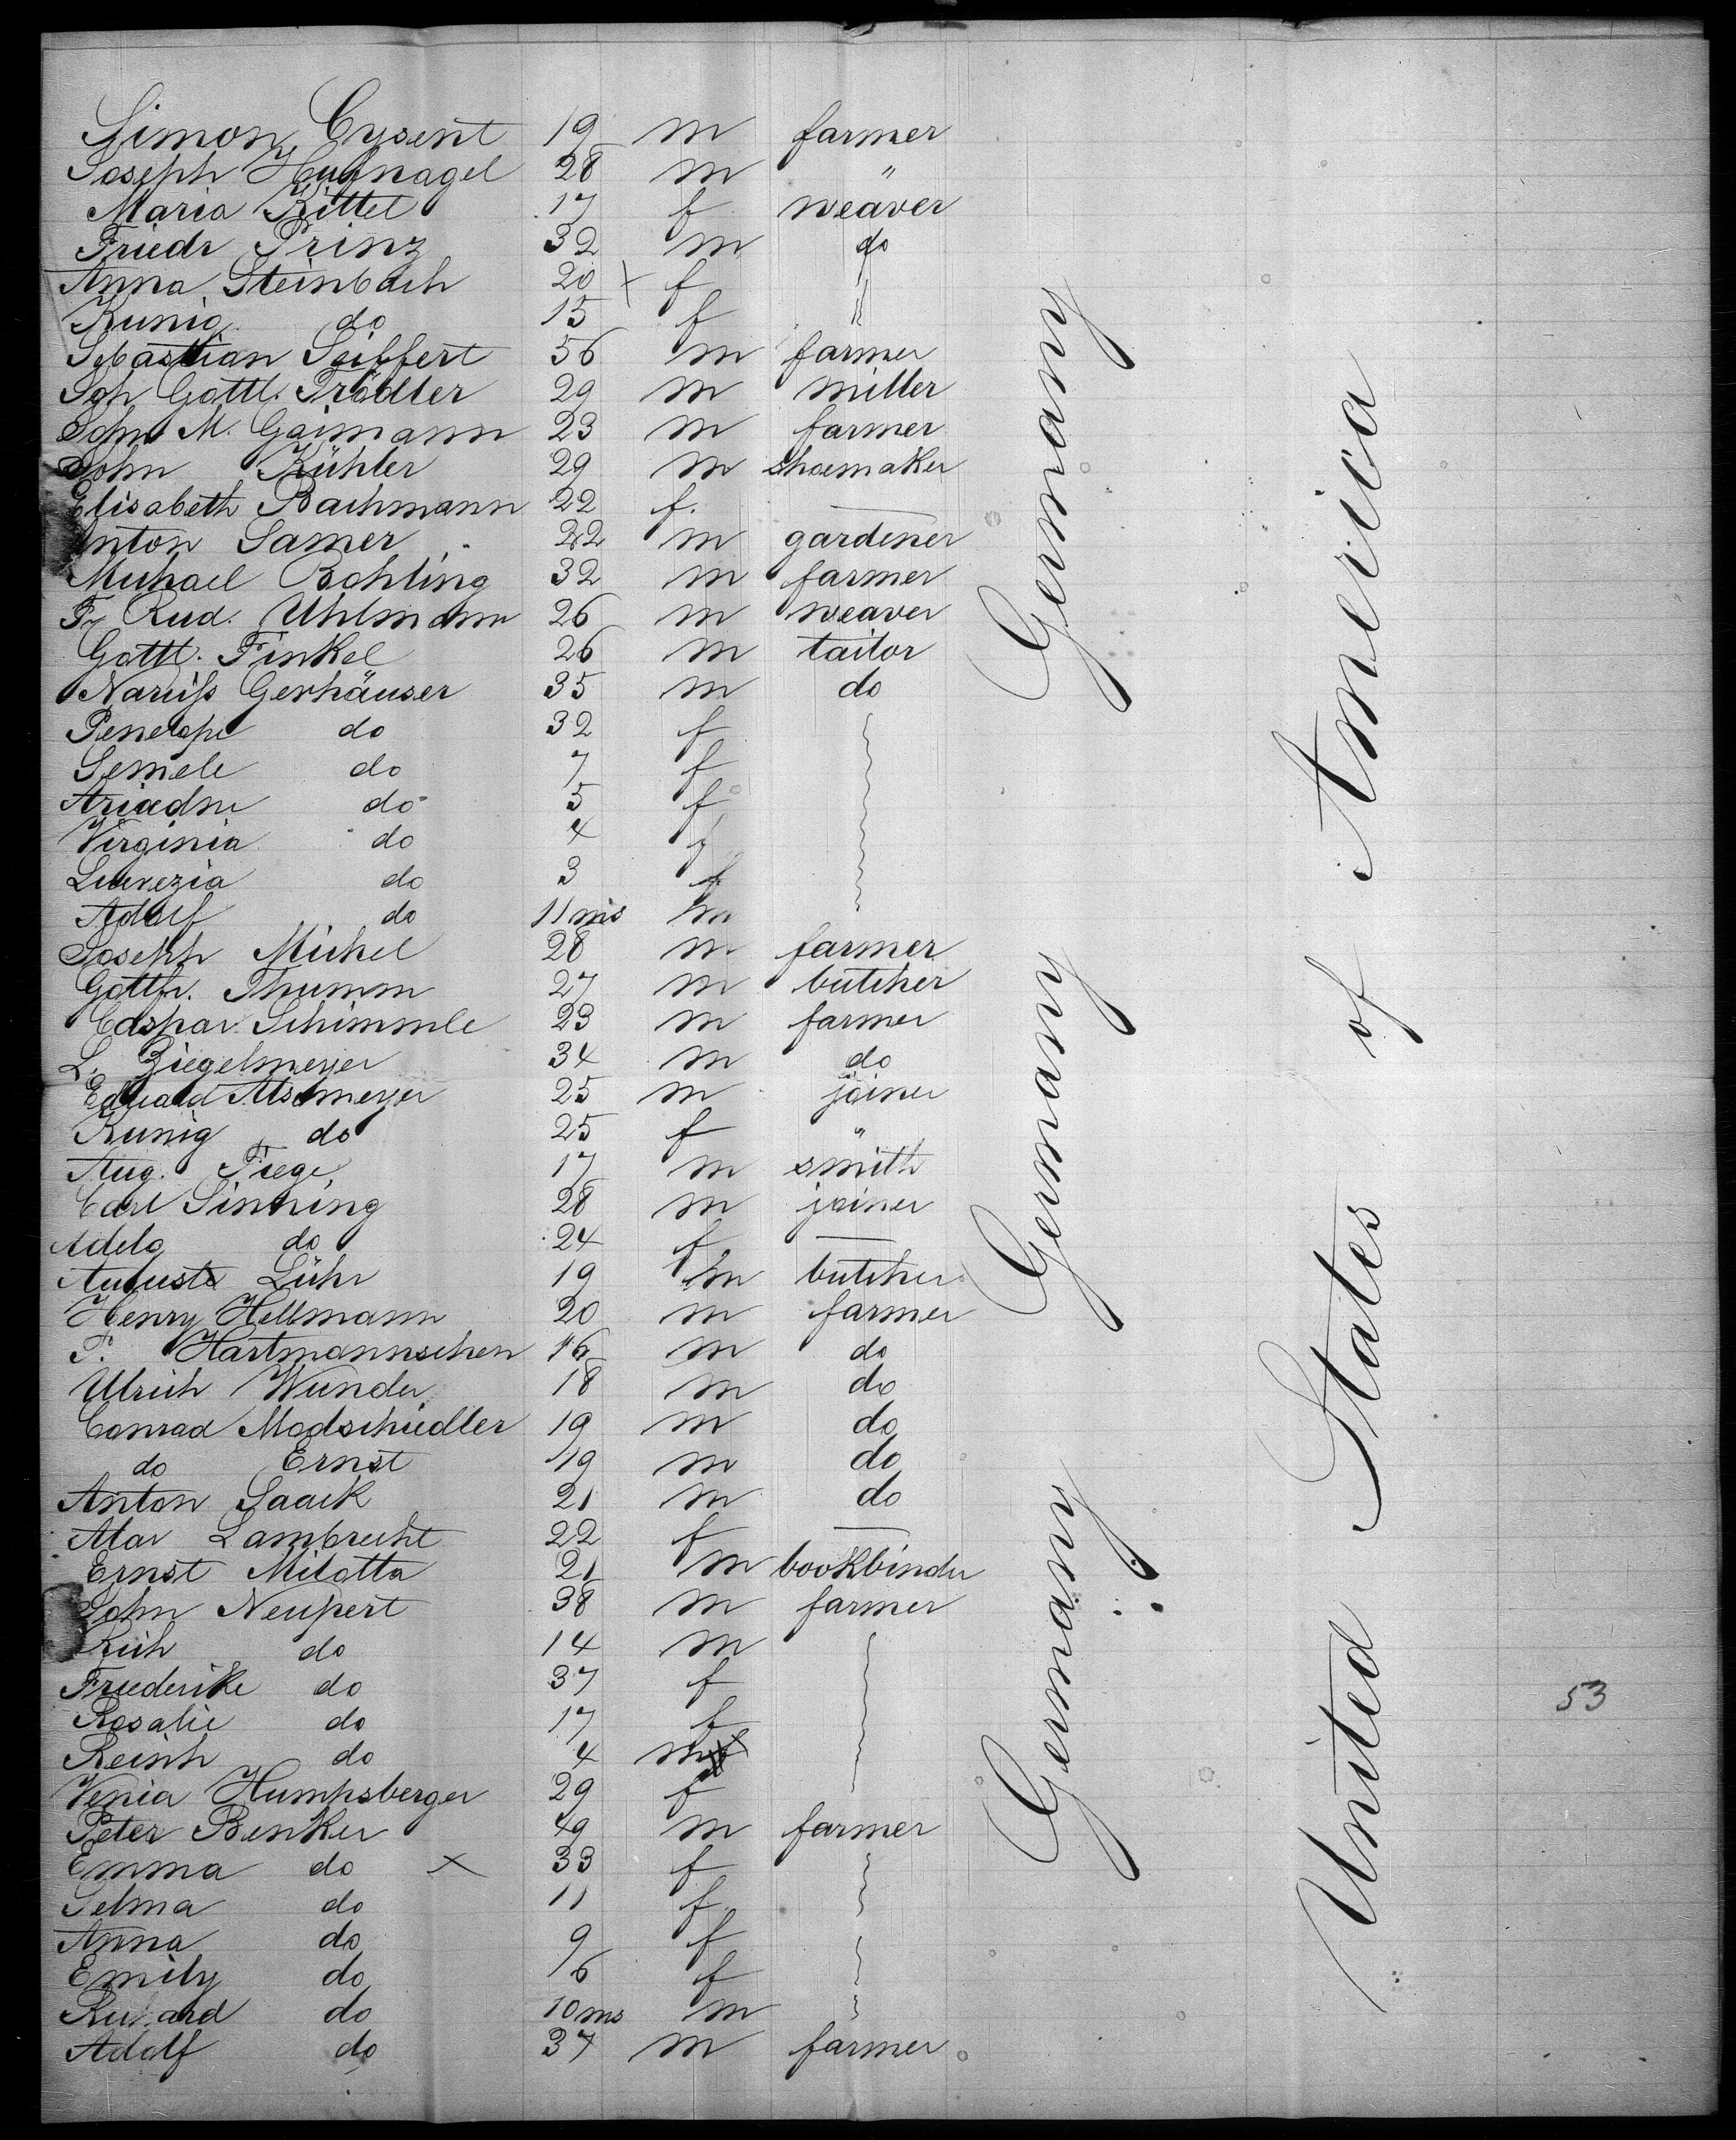 Simon Cysent 19 m farmer
Joseph Hufnagel 28 m "
Maria Kittel 17 f weaver
Friedr Prinz 32 m do
Anna Steinbach 20 x f
Kunig do 15 f
Sebastian Seiffert 56 m farmer
Joh Gottl. Trödler 29 m miller
John M. Gaimann 23 m farmer
John Kühler 29 m shoemaker
Elisabeth Bachmann 22 f. —
Anton Samer 22 m gardener
Michael Bohling 32 m farmer
Fr Rud. Uhlmann 26 m weaver
Gottl. Finkel 26 m tailor
Narciss Gerhäuser 35 m do
Penelope do 32 f
Semele do 7 f
Ariadne do 5 f
Virginia do 4 f
Lucrezia do 3 f
Adolf do 11 ms m
Joseph Michel 28 m farmer
Gottfr. Thumm 27 m butcher
Caspar Schimmle 23 m farmer
L. Ziegelmeyer 34 m do
Eduard Alsmeyer 25 m joiner
Kunig do 25 f "
Aug. Fiege 17 m smith
Carl Sinning 28 m joiner
Adela do 24 f —
Auguste Lühr 19 m butcher
Henry Hellmann 20 m farmer
F. Hartmannschen 16 m do
Ulrich Wunder 18 m do
Conrad Modschiedler 19 m do
do Ernst 19 m do
Anton Saack 21 m do
Alar Lambrecht 22 f —
Ernst Milotta 21 m bookbinder
John Neupert 38 m farmer
Rich do 14 m
Friederike do 37 f
Rosalie do 17 f
Reinh do 4 m
Venia Humpsberger 29 f
Peter Benker 49 m farmer
Emma do x 33 f
Selma do 11 f
Anna do 9 f
Emily do 6 f
Richard do 10 ms m
Adolf do 37 m farmer
Germany Germany Germany
United States of America
53